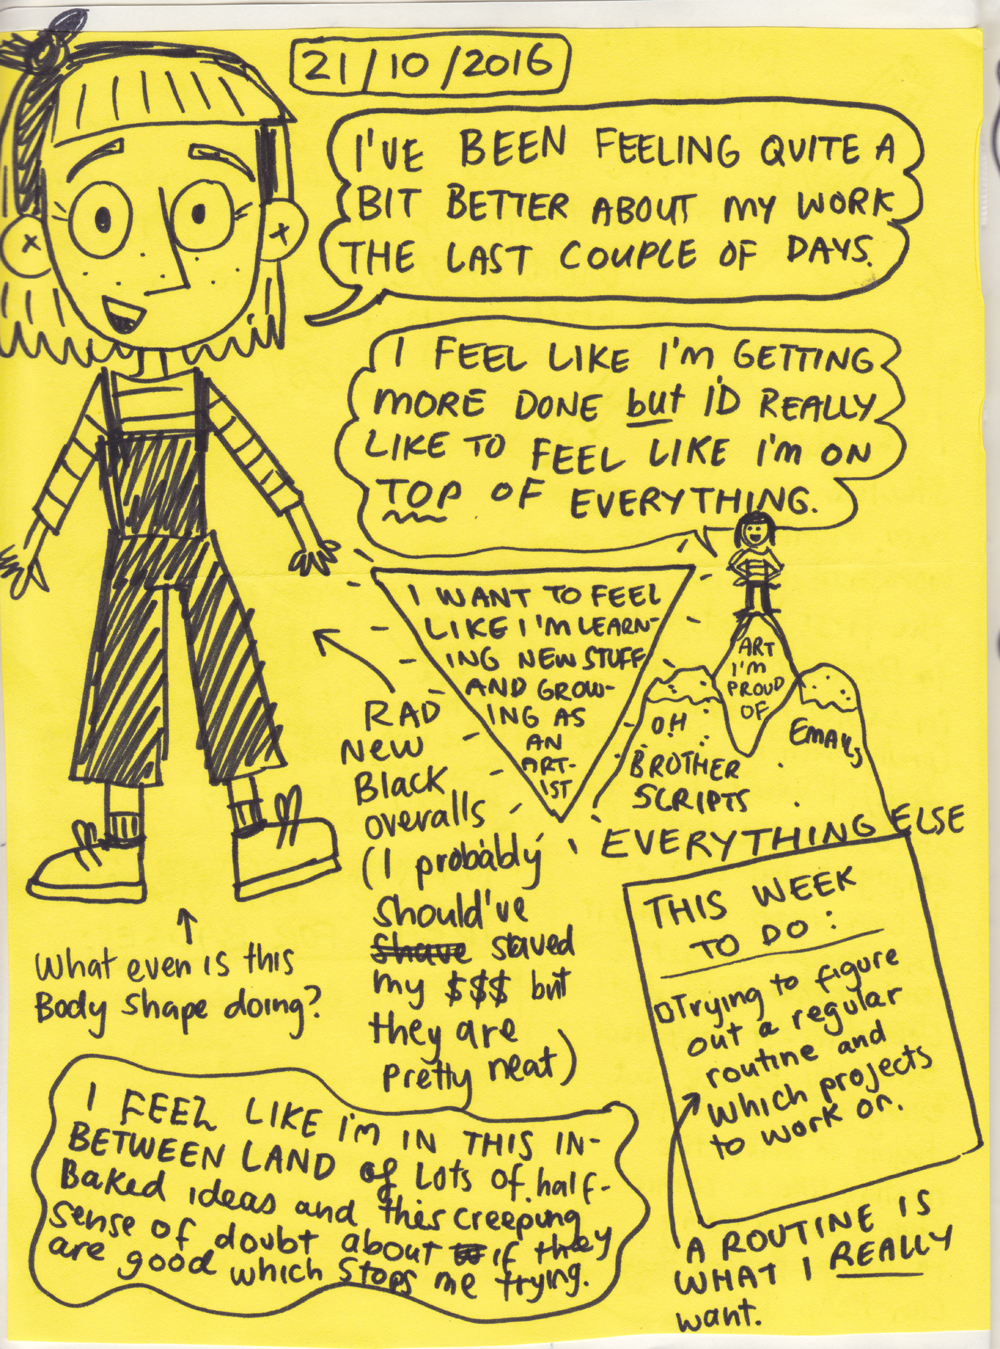 21/10/2016
I'VE BEEN FEELING QUITE A
BIT BETTER ABOUT MY WORK
THE LAST COUPLE OF DAYS.
I FEEL LIKE I'M GETTING
MORE DONE but I'D REALLY
LIKE TO FEEL LIKE I'M ON
TOP OF EVERYTHING.
I WANT TO FEEL
LIKE I'M LEARN-
ING NEW STUFF
AND GROW-
ING AS
AN
ART-
IST
ART
I'M
PROUD
OF
OH
BROTHER
SCRIPTS
EMAILS
EVERYTHING ELSE
RAD
NEW
Black
overalls
(I probably
should've
shave saved
my $$$ but
they are
pretty neat)
What even is this
Body shape doing?
THIS WEEK
TO DO:
Trying to figure
out a regular
routine and
which projects
to work on.
A ROUTINE IS
WHAT I REALLY
want.
I FEEL LIKE I'M IN THIS IN-
BETWEEN LAND of LOTS of half-
Baked ideas and this creeping
sense of doubt about if they
are good which STOPS me trying.